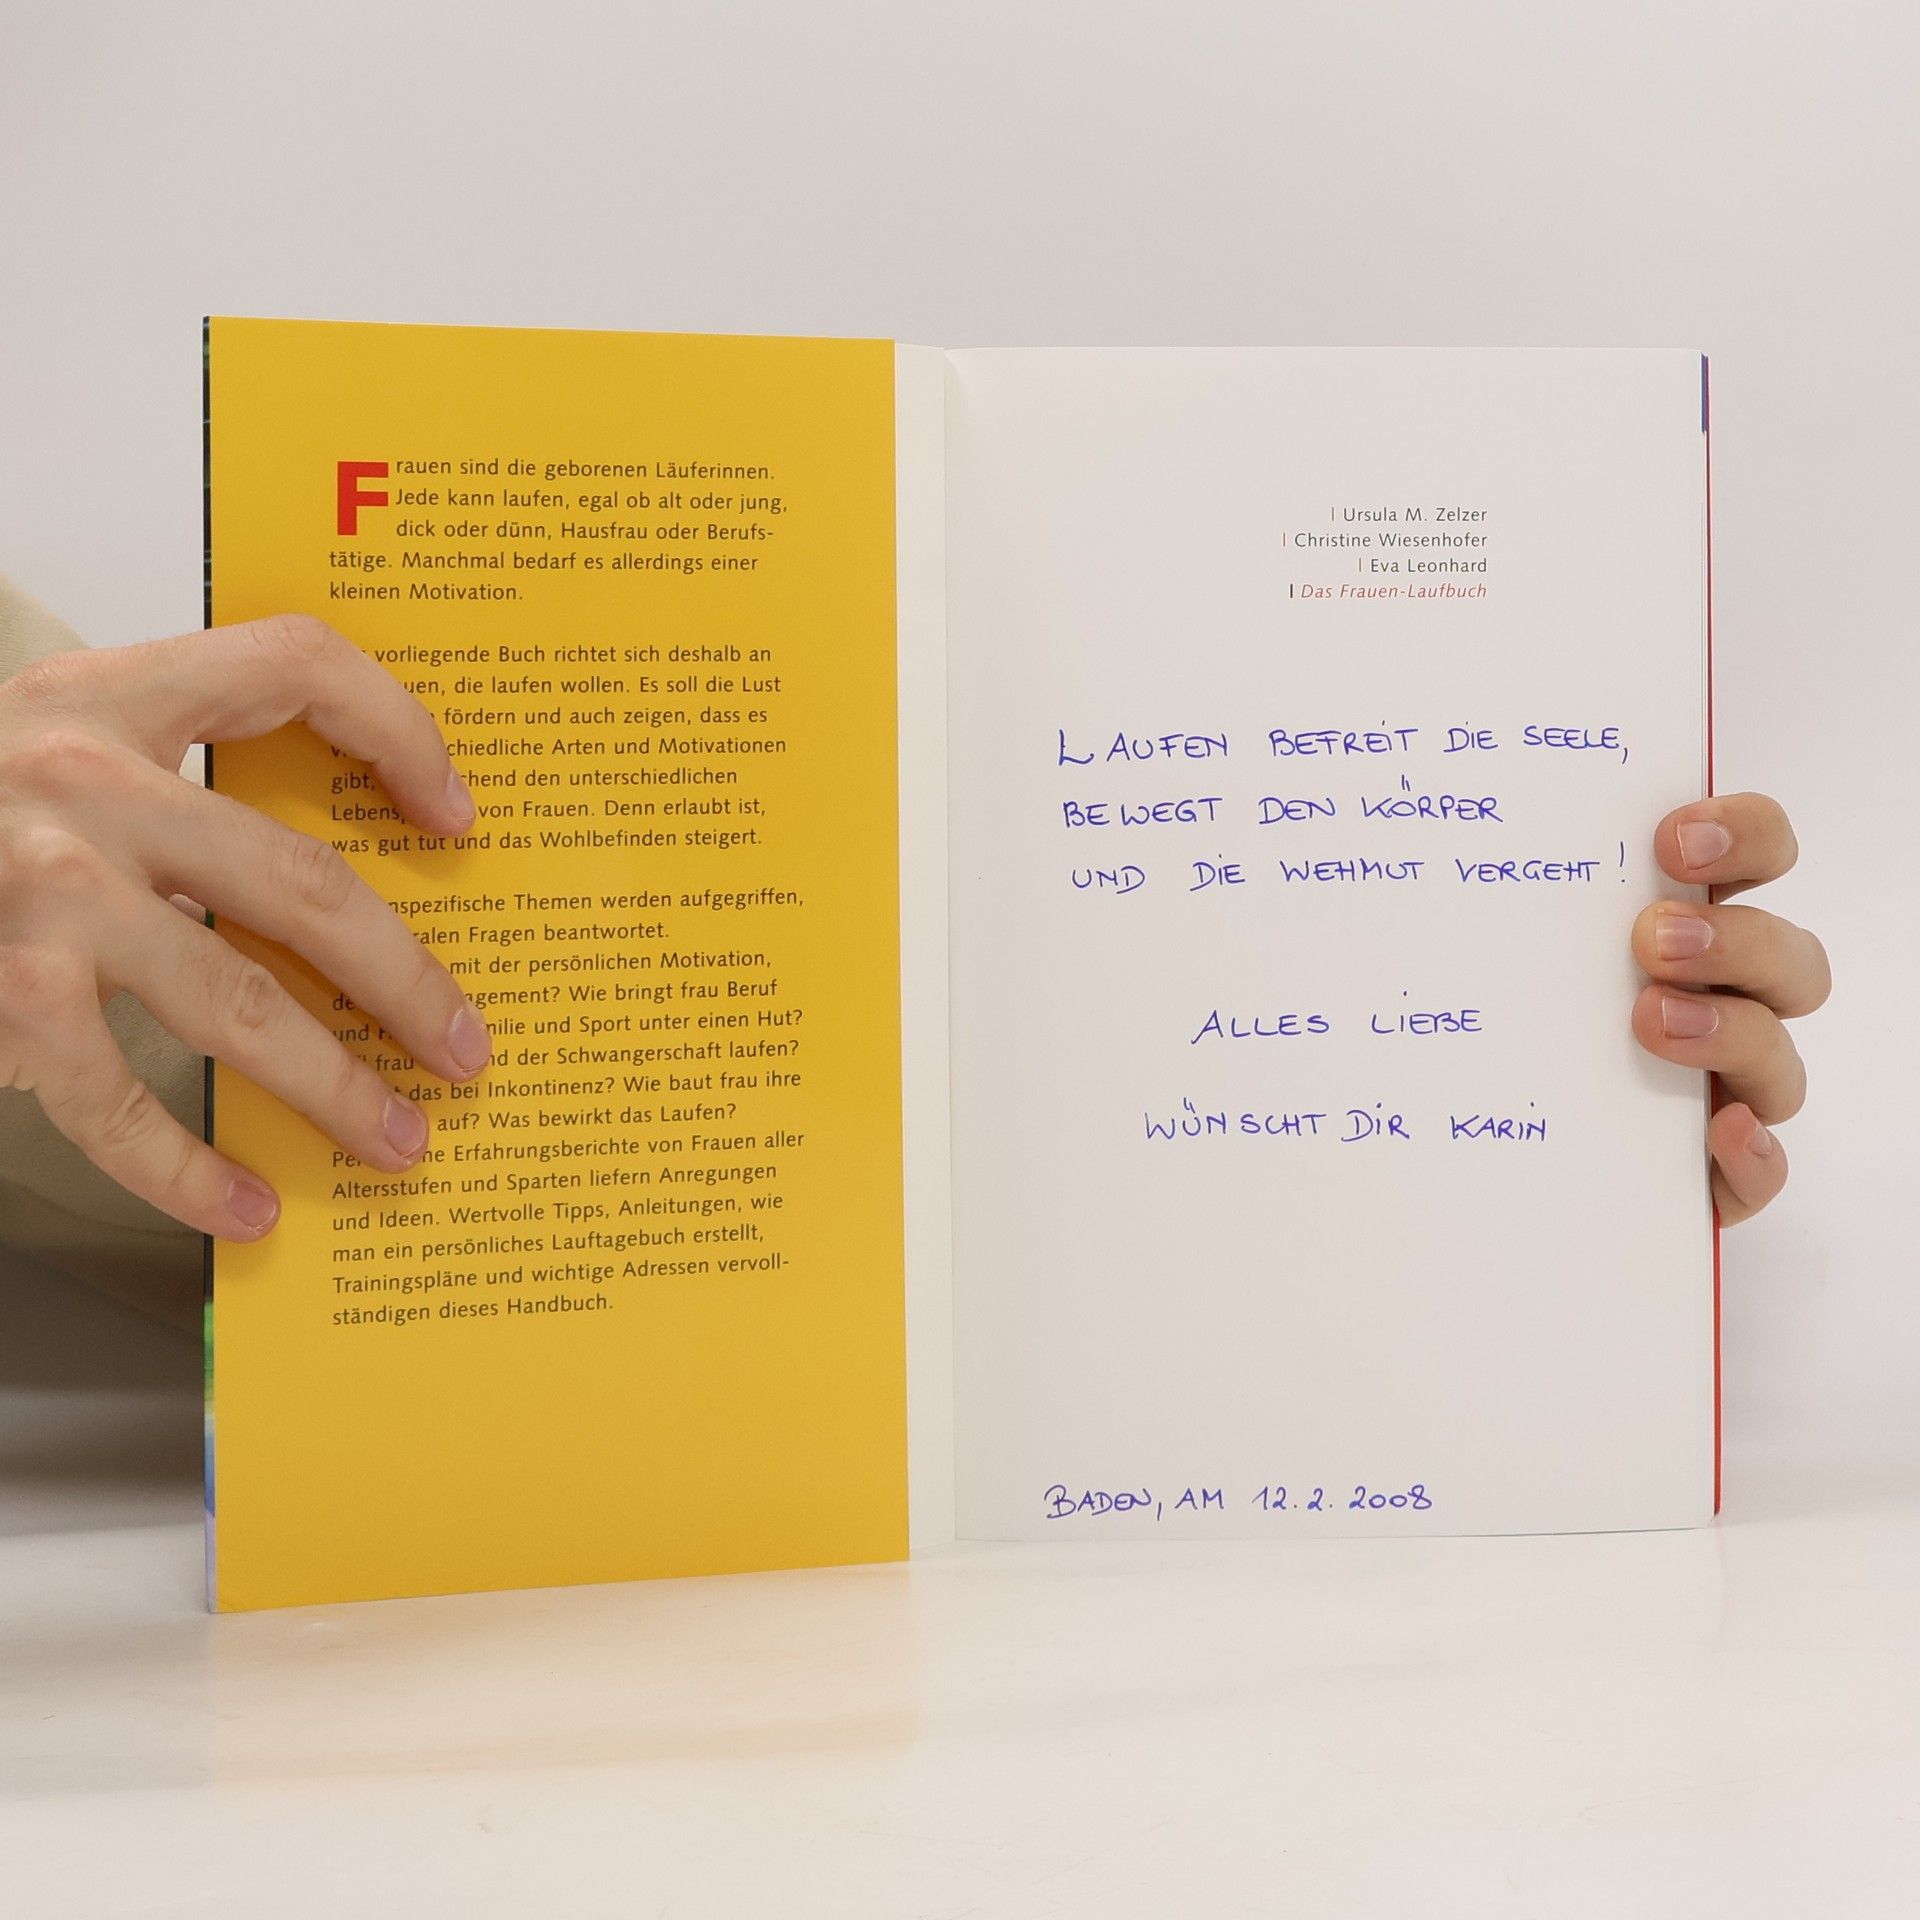 Frauen sind die geborenen Läuferinnen.
Jede kann laufen, egal ob alt oder jung,
dick oder dünn, Hausfrau oder Berufs-
tätige. Manchmal bedarf es allerdings einer
kleinen Motivation.
vorliegende Buch richtet sich deshalb an
die laufen wollen. Es soll die Lust
fördern und auch zeigen, dass es
Arten und Motivationen
gibt, den unterschiedlichen
von Frauen. Denn erlaubt ist,
was gut tut und das Wohlbefinden steigert.
Themen werden aufgegriffen,
Fragen beantwortet.
mit der persönlichen Motivation,
Wie bringt frau Beruf
und und Sport unter einen Hut?
frau der Schwangerschaft laufen?
das bei Inkontinenz? Wie baut frau ihre
auf? Was bewirkt das Laufen?
Erfahrungsberichte von Frauen aller
Altersstufen und Sparten liefern Anregungen
und Ideen. Wertvolle Tipps, Anleitungen, wie
man ein persönliches Lauftagebuch erstellt,
Trainingspläne und wichtige Adressen vervoll-
ständigen dieses Handbuch.
| Ursula M. Zelzer
| Christine Wiesenhofer
| Eva Leonhard
| Das Frauen-Laufbuch
LAUFEN BEFREIT DIE SEELE,
BEWEGT DEN KÖRPER
UND DIE WEHMUT VERGEHT!
ALLES LIEBE
WÜNSCHT DIR KARIN
BADEN, AM 12.2.2008